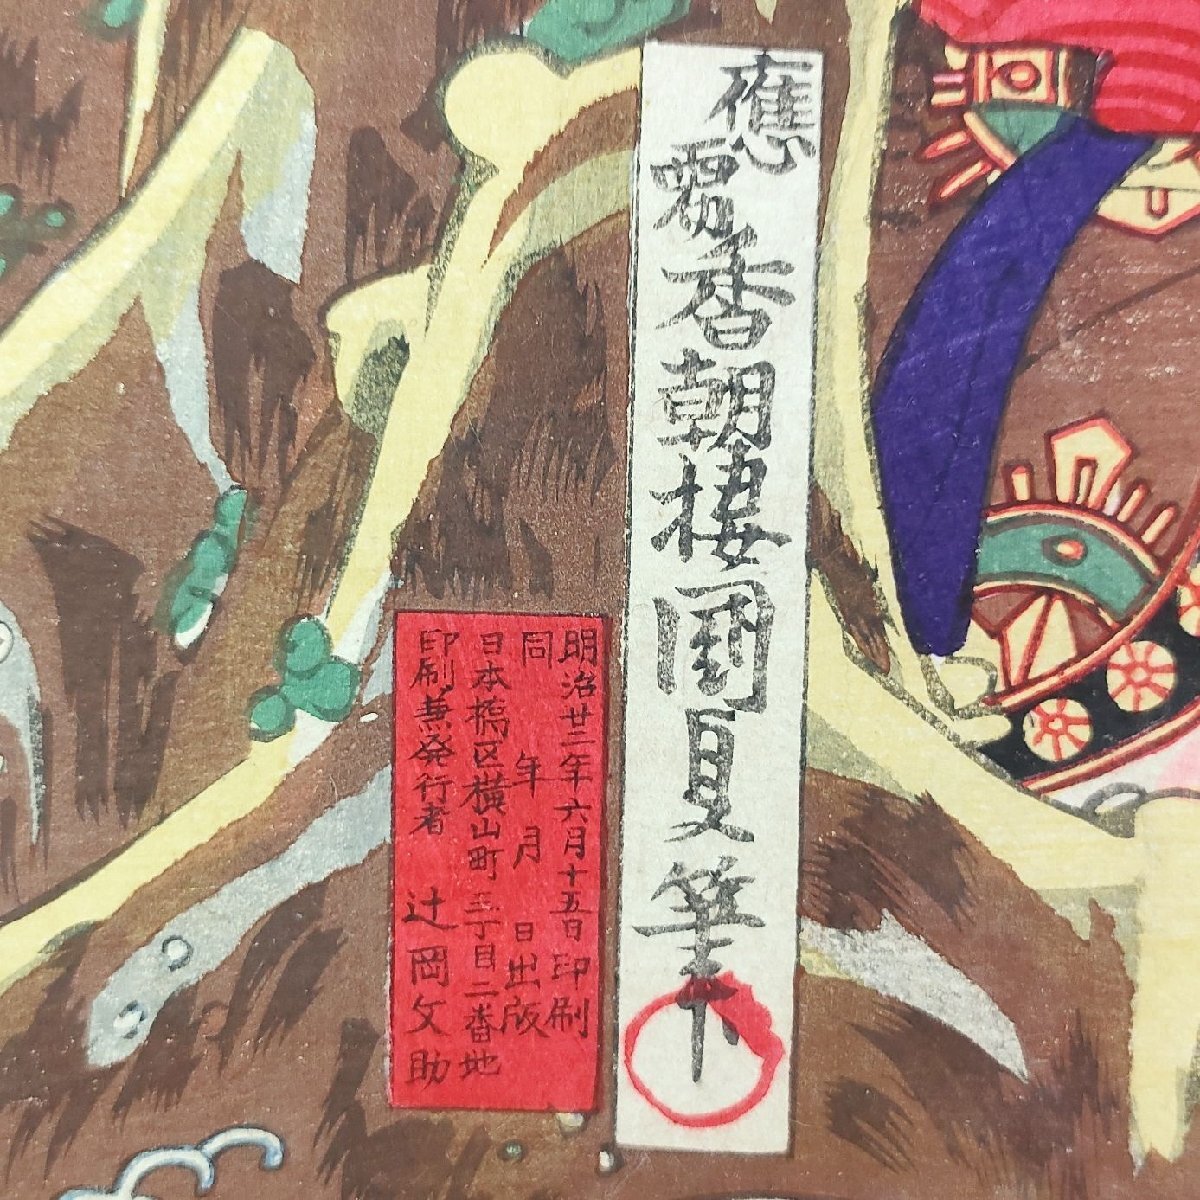 應需香朝楼國貞筆
明治廿二年六月十五日印刷
同 年 月 日出版
日本橋区横山町三丁目二番地
印刷兼発行者 辻岡文助